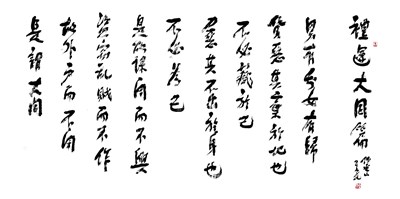 禮運大同
男有分女有歸
貨惡其棄於地也
不必藏於己
力惡其不出於身也
不必為己
是故謀閉而不興
盜竊亂賊而不作
故外戶而不閉
是謂大同